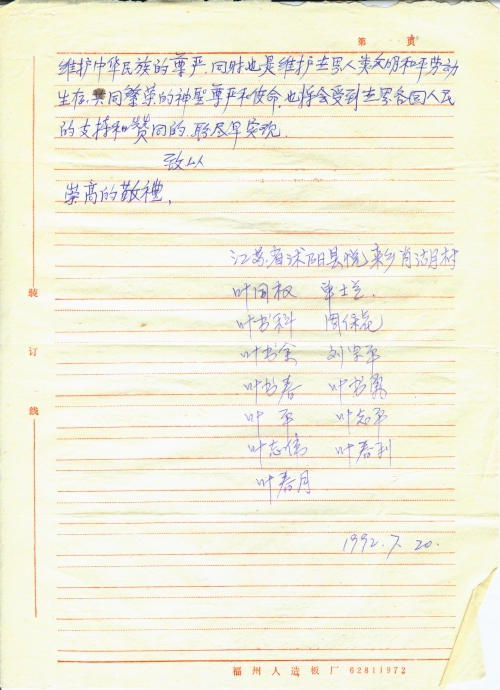 第 页
维护中华民族的尊严.同时也是维护世界人类文明和平劳动
生存.共同繁荣的神聖尊严和使命.也将会受到世界各国人民
的支持和赞同的.盼尽早实现.
致以
崇高的敬禮.
江苏省沭阳县悦来乡肖胡村
叶国权 单士兰.
叶书科 周保花
叶书余 刘翠平
叶书春
叶平 叶志平
叶志伟 叶春利
叶春月
1992.7.20.
装
订
线
福州人造板厂 62811972